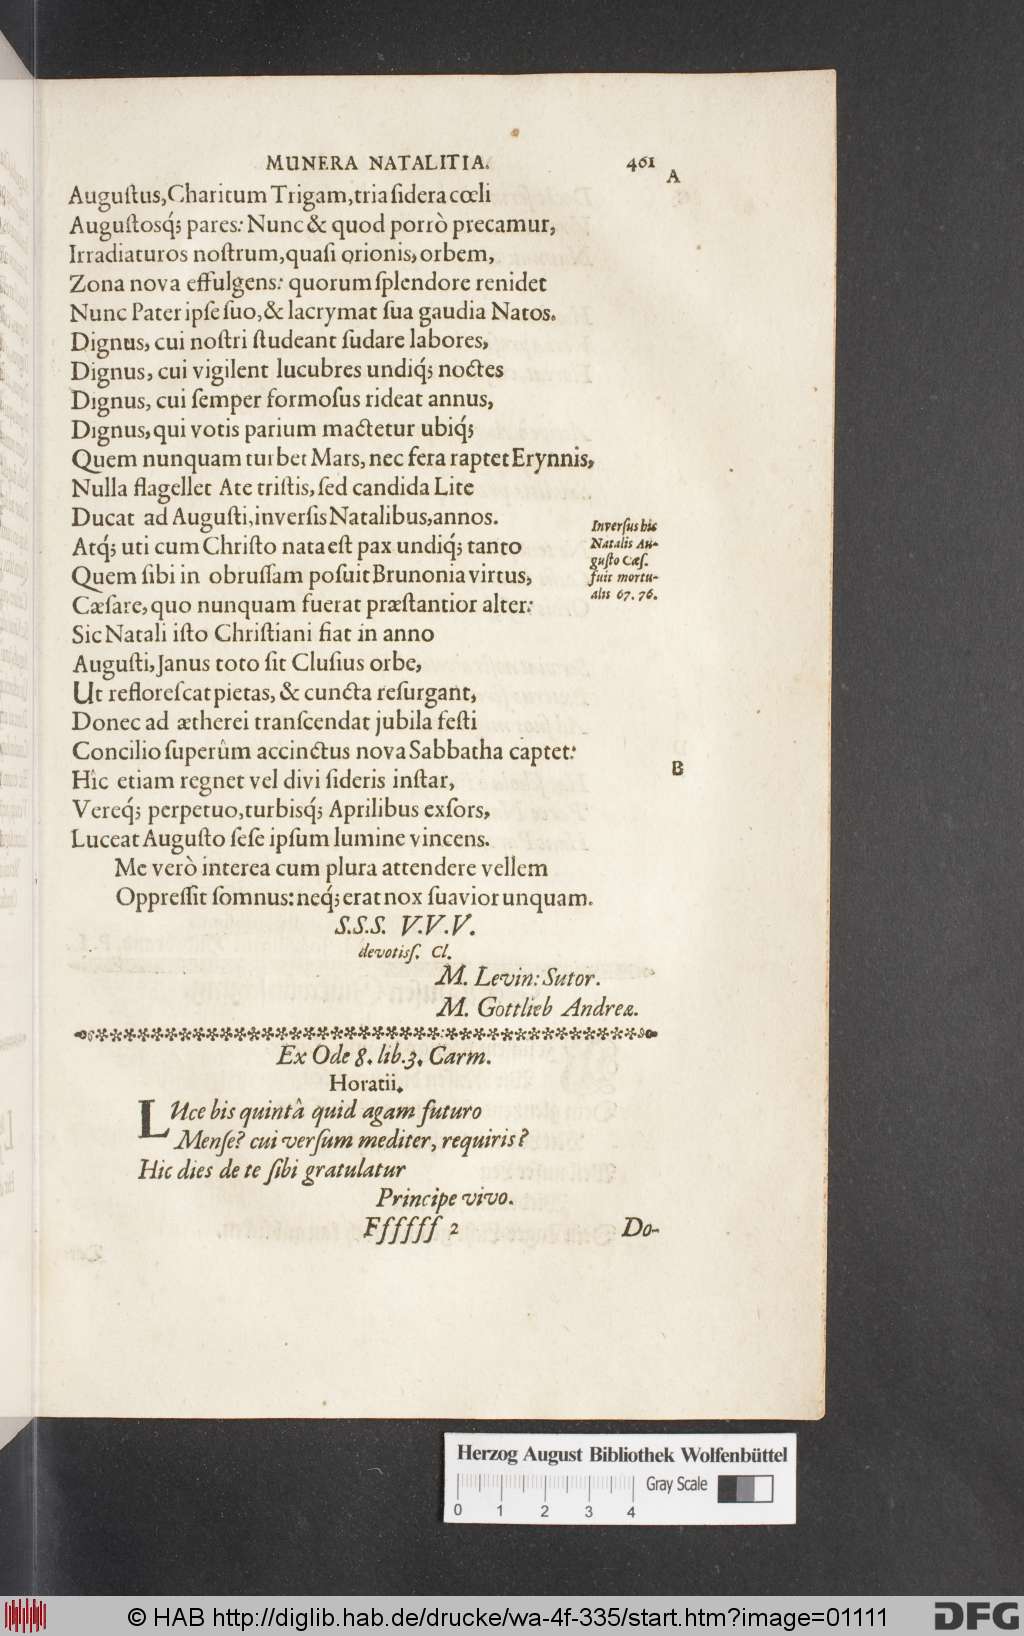 MUNERA NATALITIA. 461
A
Auguſtus, Charitum Trigam, tria ſidera cœli
Auguſtosq́; pares: Nunc & quod porrò precamur,
Irradiaturos noſtrum, quaſi orionis, orbem,
Zona nova effulgens: quorum ſplendore renidet
Nunc Pater ipſe ſuo, & lacrymat ſua gaudia Natos.
Dignus, cui noſtri ſtudeant ſudare labores,
Dignus, cui vigilent lucubres undiq́; noctes
Dignus, cui ſemper formoſus rideat annus,
Dignus, qui votis parium mactetur ubiq́;
Quem nunquam turbet Mars, nec fera raptet Erynnis,
Nulla flagellet Ate triſtis, ſed candida Lite
Ducat ad Auguſti, inverſis Natalibus, annos.
Inverſus hic
Natalis Au-
guſto Cæſ.
fuit mortu-
alis 67. 76.
Atq́; uti cum Chriſto nata eſt pax undiq́; tanto
Quem ſibi in obruſſam poſuit Brunonia virtus,
Cæſare, quo nunquam fuerat præſtantior alter:
Sic Natali iſto Chriſtiani fiat in anno
Auguſti, Janus toto ſit Cluſius orbe,
Ut refloreſcat pietas, & cuncta reſurgant,
Donec ad ætherei tranſcendat jubila feſti
Concilio ſuperûm accinctus nova Sabbatha captet:
B
Hîc etiam regnet vel divi ſideris inſtar,
Vereq́; perpetuo, turbisq́; Aprilibus exſors,
Luceat Auguſto ſeſe ipſum lumine vincens.
Me verò interea cum plura attendere vellem
Oppreſſit ſomnus: neq́; erat nox ſuavior unquam.
S.S.S. V.V.V.
devotiſſ. Cl.
M. Levin: Sutor.
M. Gottlieb Andreæ.
Ex Ode 8. lib. 3. Carm.
Horatii.
LUce bis quintâ quid agam futuro
Menſe? cui verſum mediter, requiris?
Hic dies de te ſibi gratulatur
Principe vivo.
Fſſſſſ 2 Do-
Herzog August Bibliothek Wolfenbüttel
Gray Scale
0 1 2 3 4
© HAB http://diglib.hab.de/drucke/wa-4f-335/start.htm?image=01111
DFG